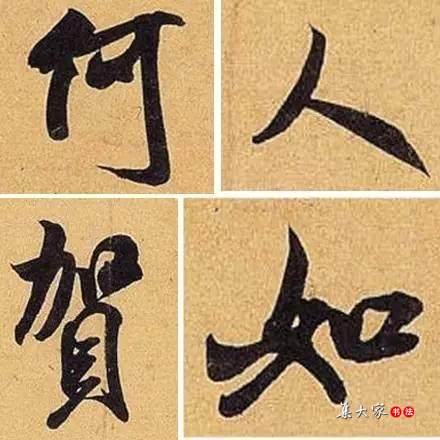 何人
賀如
集大家书法